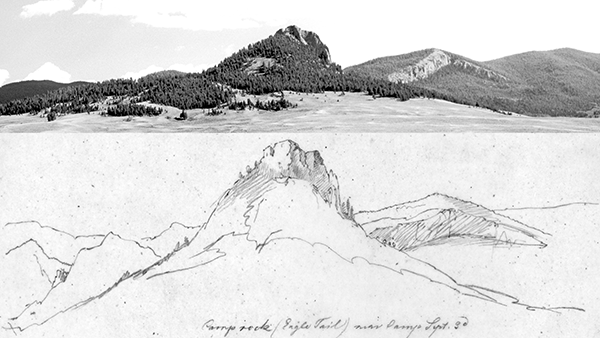 Camp rock (Eagle Tail) near Camp Sept. 3d